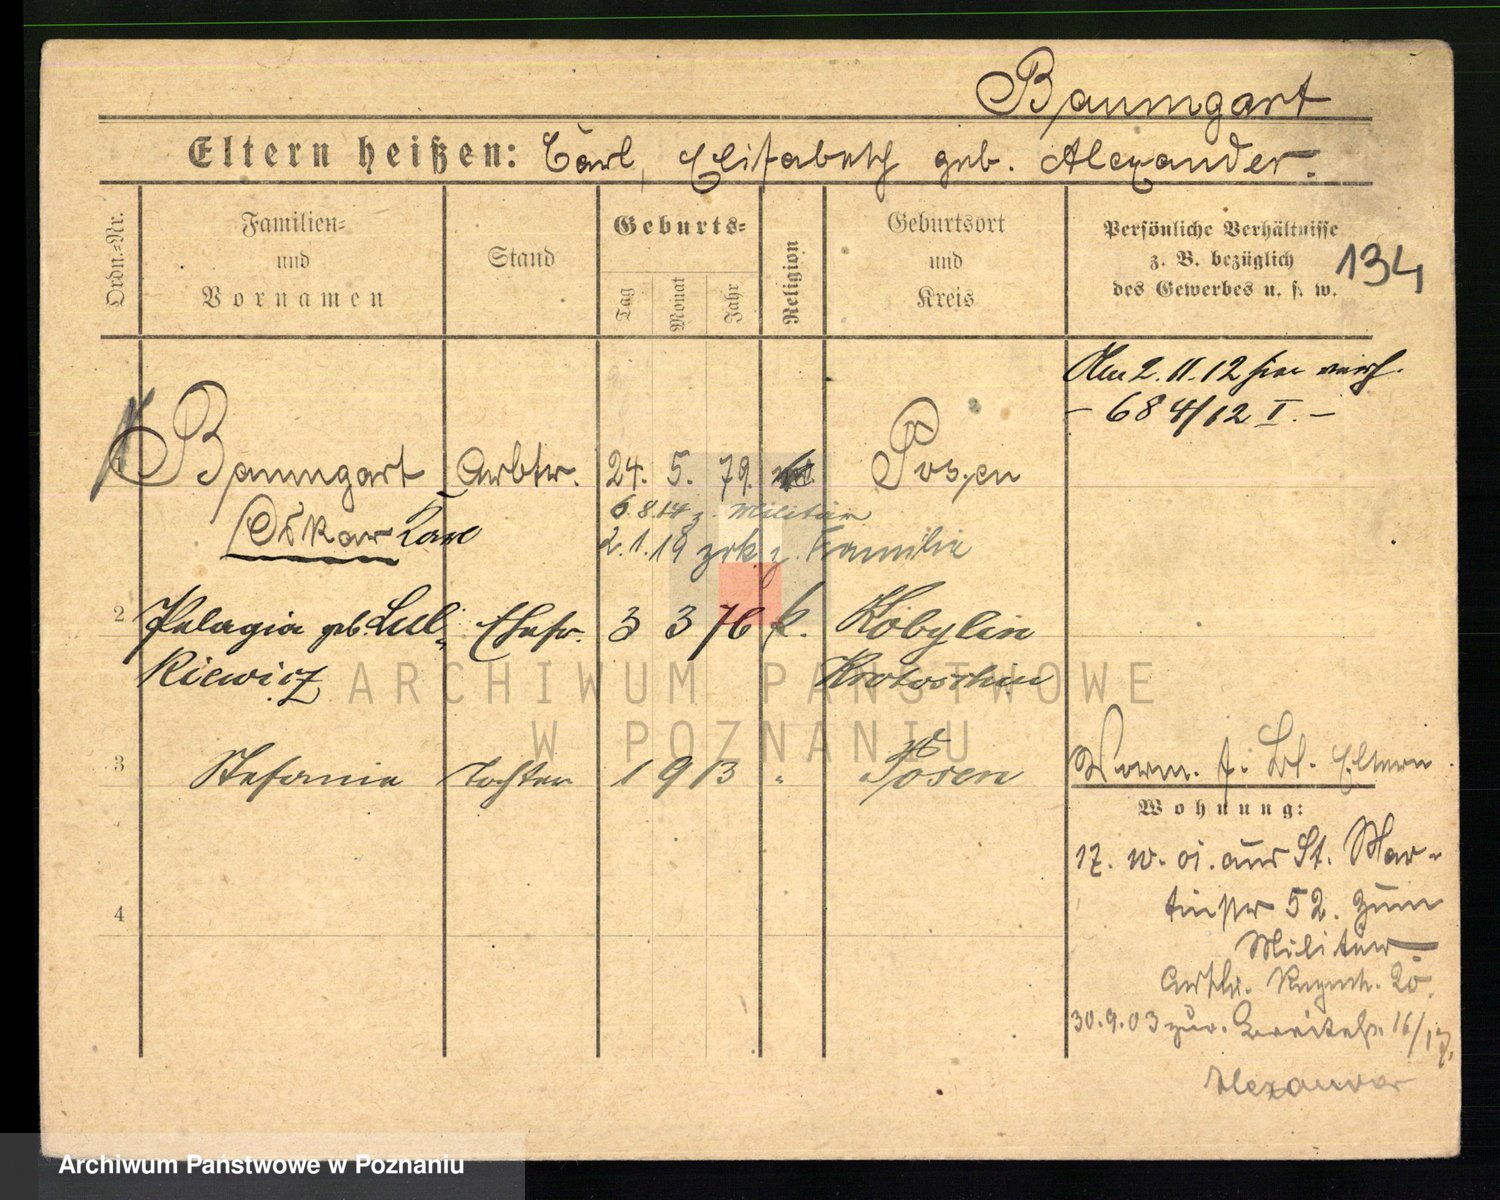 Baumgart
Eltern heißen: Carl, Elisabeth geb. Alexander.
Ordn.-Nr.
Familien-
und
Vornamen
Stand
Geburts-
Tag
Monat
Jahr
Religion
Geburtsort
und
Kreis
Persönliche Verhältnisse
z. B. bezüglich
des Gewerbes u. s. w.
134
Am 2.11.12 hier
- 684/12 I. -
1 Baumgart Arbtr. 24. 5. 79. Posen
Oskar Karl
6.8.14 z. Militär
2.1.19 zrk z. Familie
2 Pelagia geb. Lul- Ehefr. 3 3 76 k. Kobylin
kiewicz Krotoschin
3 Stefania Tochter 1 9 13 " Posen
Worm. f. Bl. Eltern
Wohnung:
17. 10. 01. aus St. Mar-
tinstr 52. zum
Militär
Artlr. Regmt. 20.
30.9.03 zur. Breitestr. 16/17.
Alexander
4
ARCHIWUM PAŃSTWOWE
W POZNANIU
Archiwum Państwowe w Poznaniu